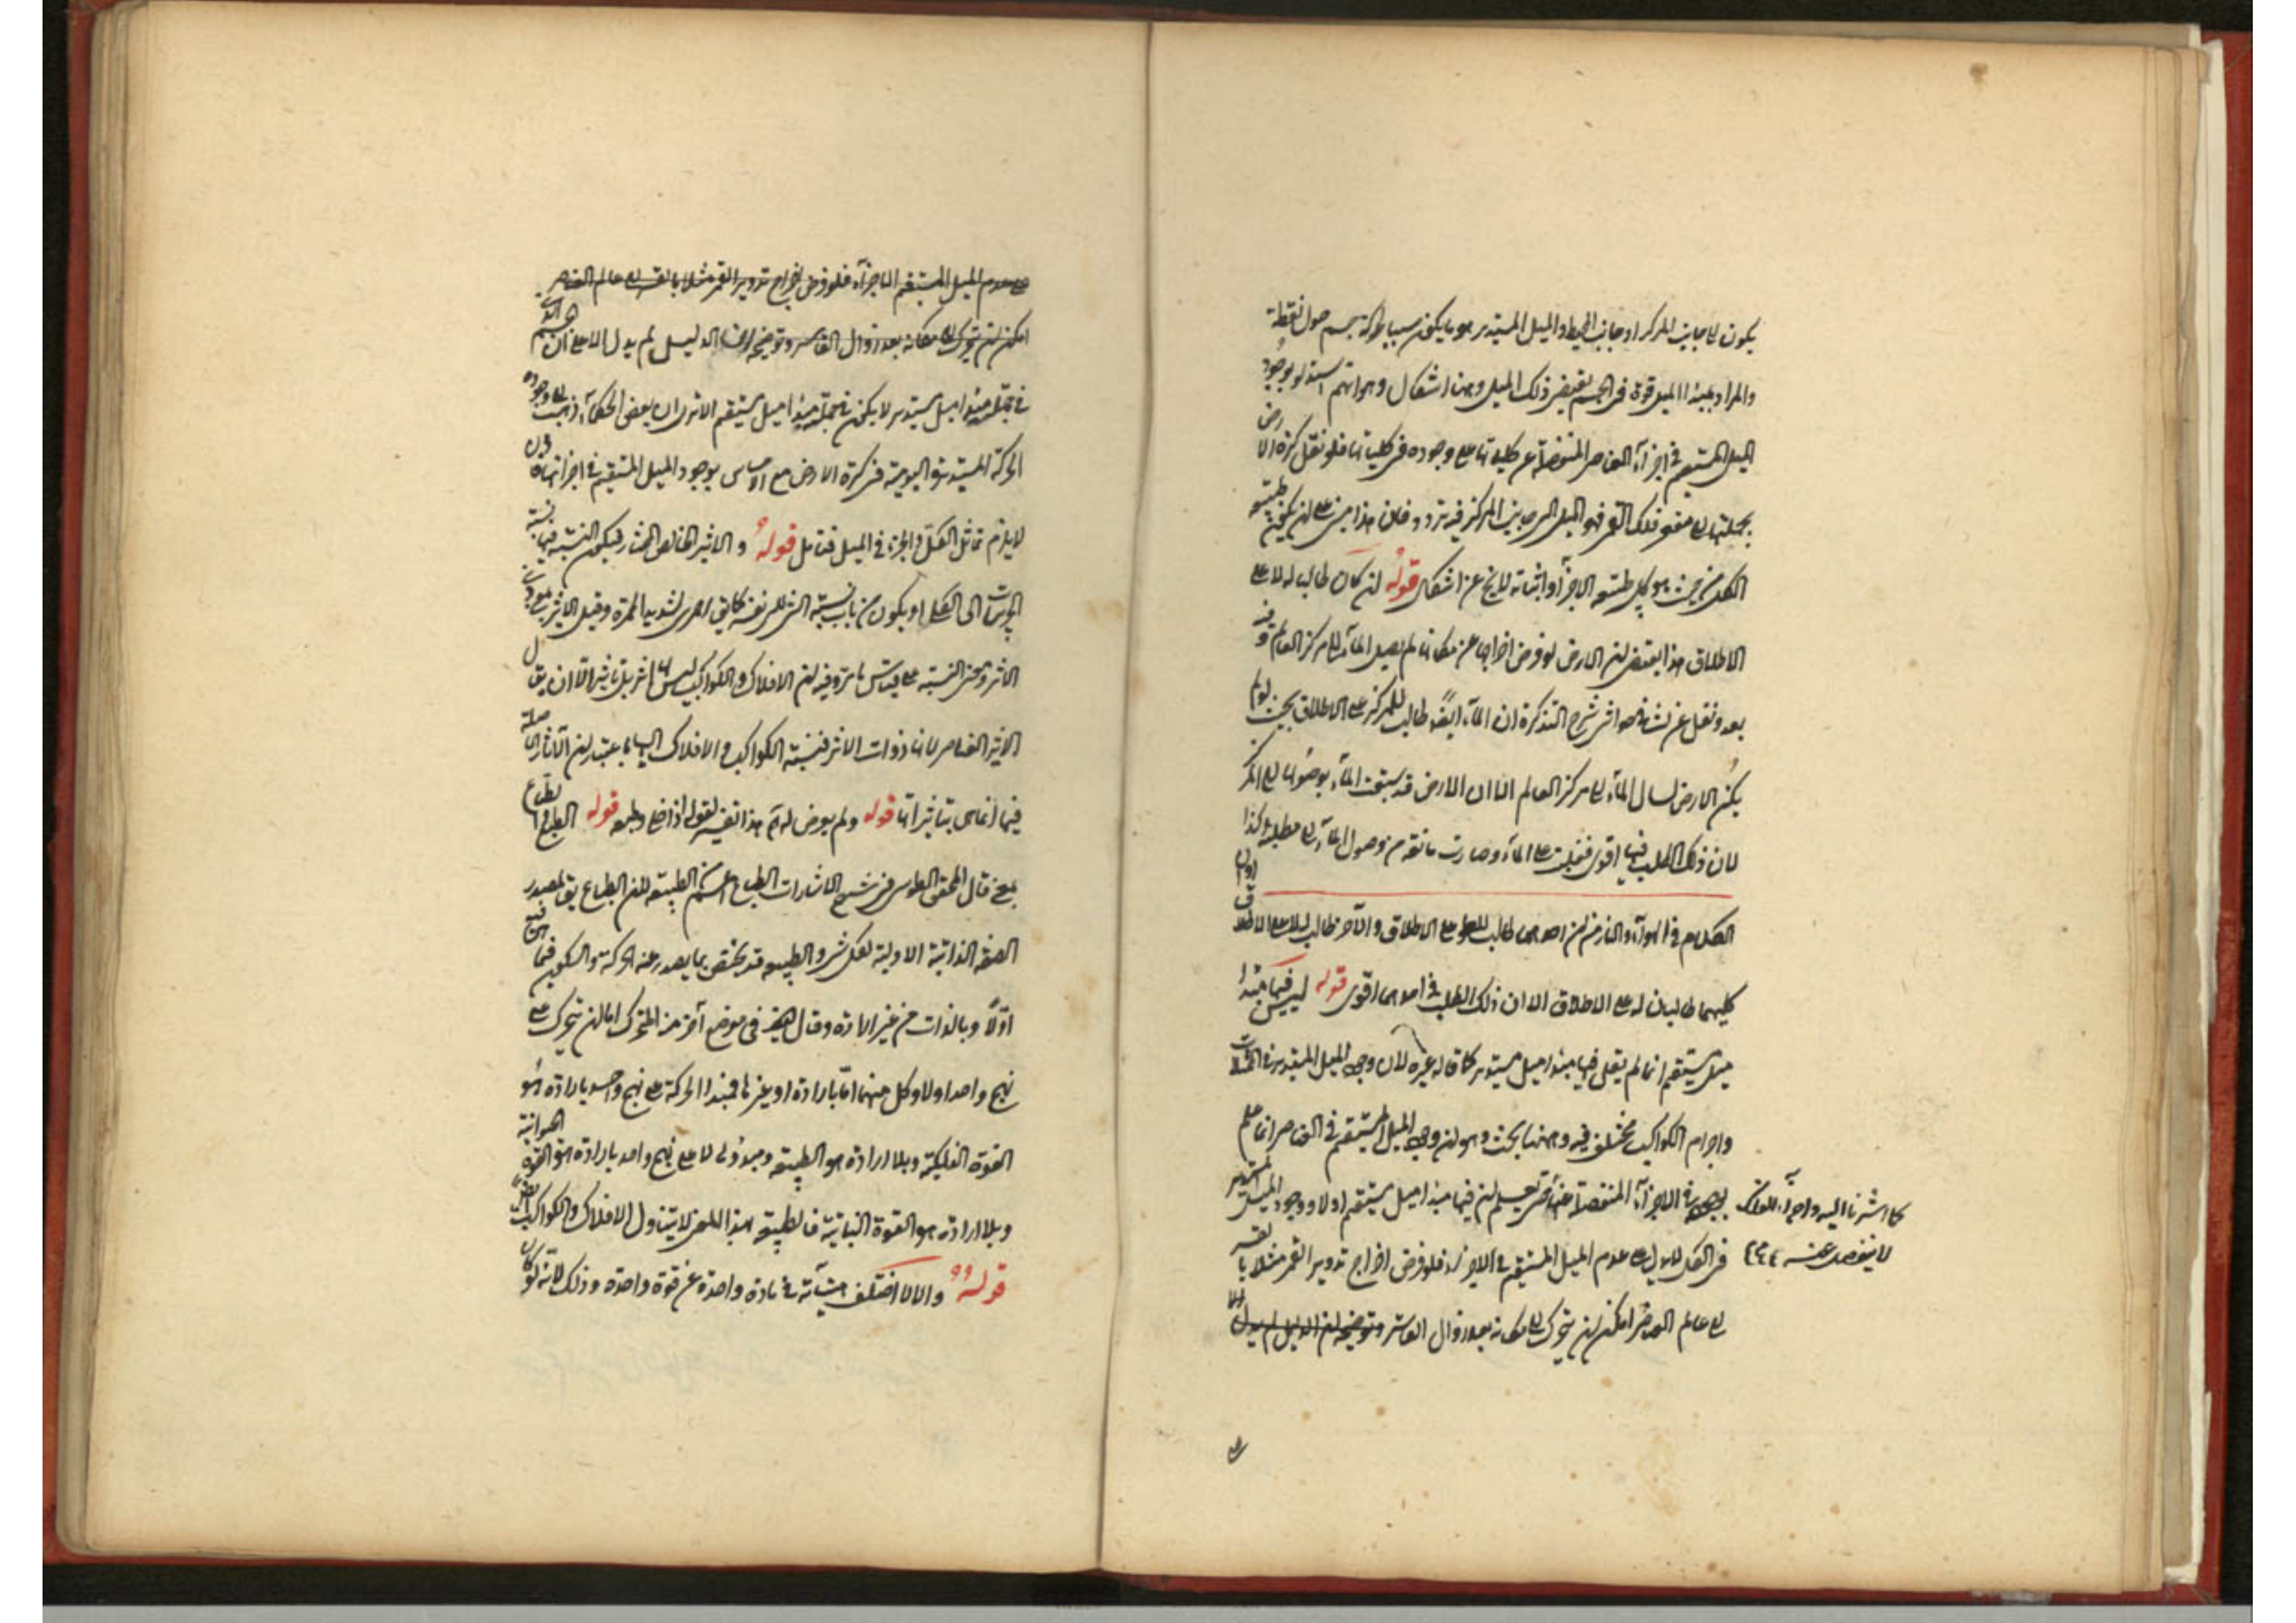 يكون الى جانب المركز او جانب المحيط والميل المستدير هو ما يكون سببا لحركة جسم حول نقطة
والمراد بمبدأ الميل قوة في الجسم يقتضي ذلك الميل وههنا اشكال وهو انهم استدلو بوجود
الميل المستقيم في اجزاء العناصر المنفصلة عن كلياتها على وجوده في كلياتها فلو نقل كرة الارض
بجملتها الى مقعر فلك القمر فهو الميل الى جانب المركز فيه تردد فان هذا مبني على ان يكون طبيعة
الكل من حيث هو كل طبيعة الاجزاء واثباته لا يخ عن اشكال قوله ان كان طالبا له لا على
الاطلاق هذا يقتضى ان الارض لو فرض اخراجها عن مكانها لم يصل الماء الى مركز العالم وفيه
بعد ونقل عن الشارح في حواشي شرح التذكرة ان الماء ايضا طالب للمركز على الاطلاق بحيث لو لم
يكن الارض لسال الماء الى مركز العالم الا ان الارض قد سبقت الماء بوصولها الى المركز
لان ذلك الطلب فيها اقوى فغلبت على الماء وصارت مانعة من وصول الماء الى مطلوبه وكذا
الكلام في الهواء والنار من ان احدهما طالب للعلو على الاطلاق والآخر طالب له لا على الاطلاق
كليهما طالبان له على الاطلاق الا ان ذلك الطلب في احدهما اقوى قوله ليس فيها مبدأ
ميل مستقيم انما لم يقل فيها مبدأ ميل مستدير كما قاله غيره لان وجود الميل المستدير في
واجرام الكواكب مختلف فيه وههنا بحث وهو ان وجود الميل المستقيم في العناصر انما علم
بوجوده في الاجزاء المنفصلة عنها لم يعلم ان فيها مبدأ ميل مستقيم اولا ووجود الميل المستدير
كما اشرنا اليه واجزاء الفلك
لا ينفصل عنه
في الكل لا يدل على عدم الميل المستقيم في الاجزاء فلو فرض اخراج تدوير القمر مثلا بالقسر
الى عالم العناصر امكن ان يتحرك الى مكانه بعد زوال القاسر وتوضيحه ان الدليل لم يدل الا
على عدم الميل المستقيم الاجزاء فلو فرض اخراج تدوير القمر مثلا بالقسر الى عالم العناصر
امكن ان يتحرك الى مكانه بعد زوال القاسر وتوضيحه ان الدليل لم يدل الا على ان الجسم الذي
في جملته مبدأ ميل مستدير لا يكون في جملته مبدأ ميل مستقيم الا ترى ان بعض الحكماء ذهب الى وجود
الحركة المستديرة اليومية في كرة الارض مع الاحساس بوجود الميل المستقيم في اجزائها
لا يلزم تماثل الكل والجزء في الميل فتأمل قوله والاثير الخالص المختار فيكون النسبة فيها نسبة
الجزئيات الى الكل او يكون من باب نسبة الشئ الى نفسه كما يق احمرى لشديد الحمرة وقيل الاثير
الاثر ومعنى النسبة على قياس ما مر وفيه ان الافلاك والكواكب ليس لها اثر بل تأثير الا ان يقال
الاثير العناصر لانها ذوات الاثر فنسبة الكواكب والافلاك اليها باعتبار ان الآثار الحاصلة
فيها انما هى بتاثيراتها قوله ولم يعرض له اه هذا تفسير لقوله اذا خلي وطبعه قوله الطبع والطباع
بمعنى قال المحقق الطوسي في شرح الاشارات الطباع اعم من الطبيعة لان الطباع يق لمصدر
الصفة الذاتية الاولية لكل شئ والطبيعة قد يختص بما يصدر عنه الحركة والسكون فيما هي فيه
اولا وبالذات من غير ارادة وقال ايضا في موضع آخر منه المتحرك اما ان يتحرك على
نهج واحد اولا وكل منهما اما بارادة او بغيرها فمبدأ الحركة على نهج واحد بارادة هو
القوة الفلكية وبلا ارادة هو الطبيعة ومبدؤها لا على نهج واحد بارادة هو القوة الحيوانية
وبلا ارادة هو القوة النباتية فالطبيعة بهذا المعنى لا يتناول الافلاك والكواكب ايضا
قوله والا لاختلف هيئآته في مادة واحدة عن قوة واحدة وذلك لانه لو كان